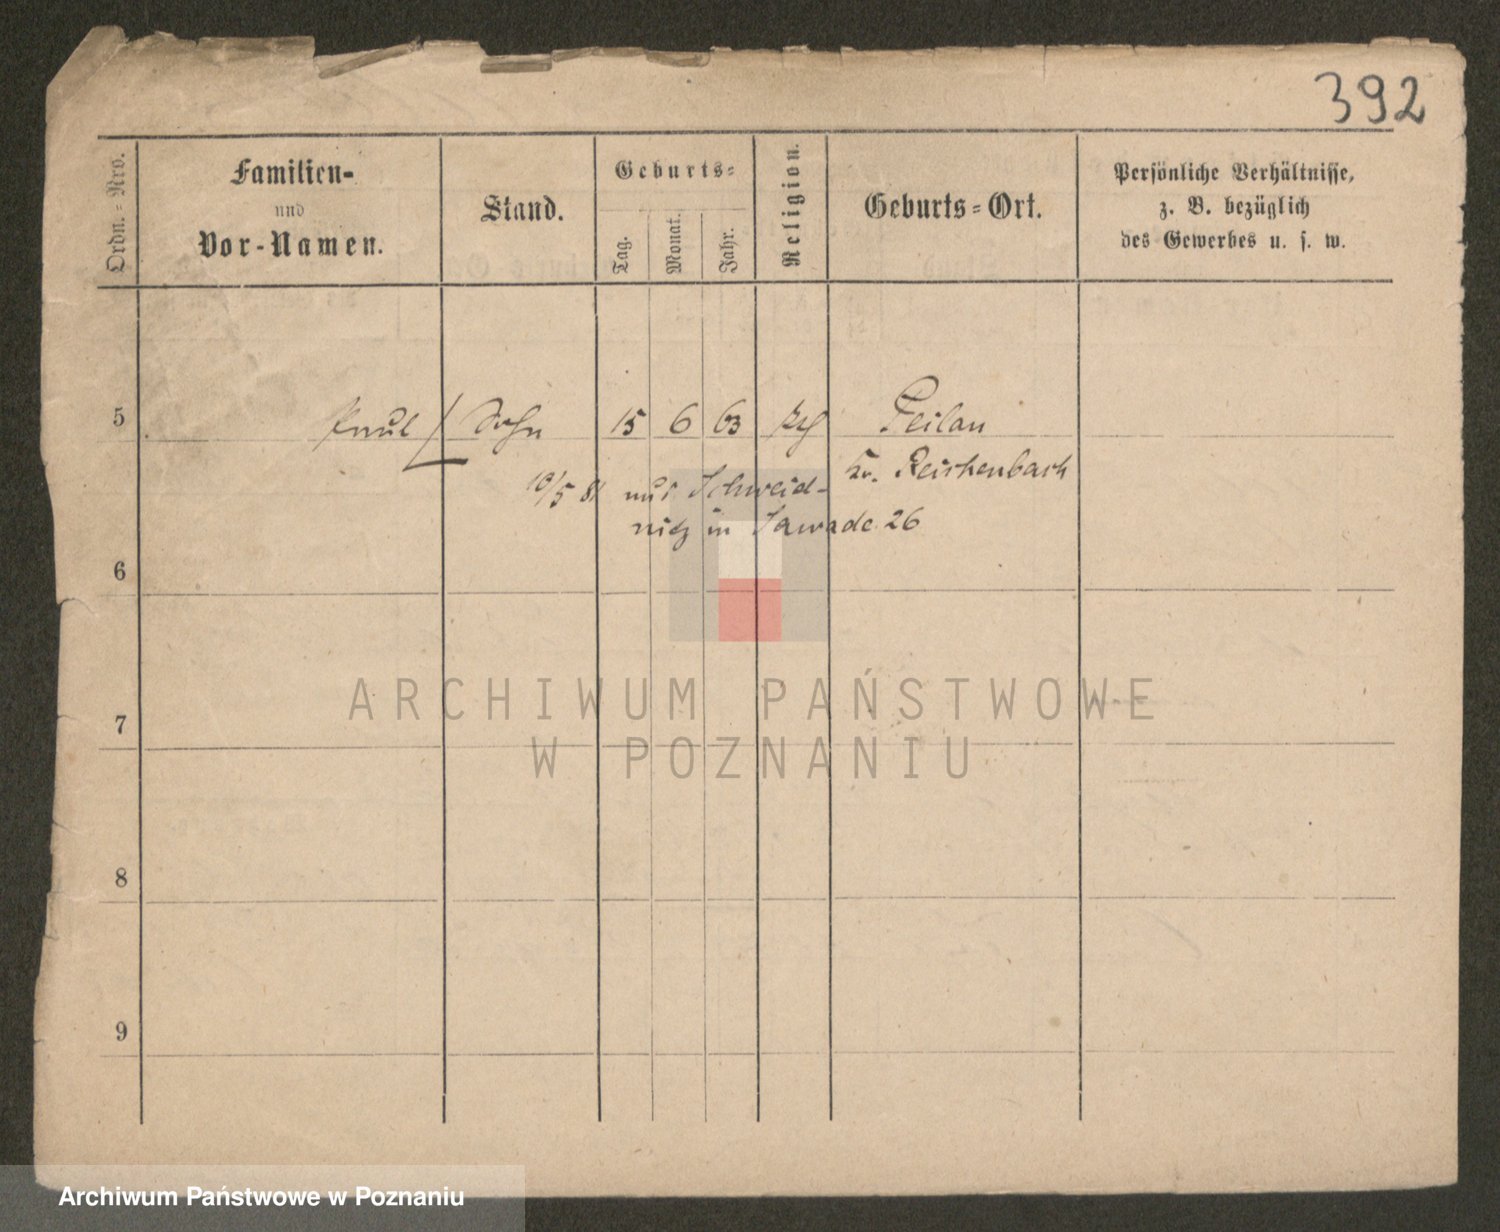 392
Ordn.=Nro.
Familien-
und
Vor-Namen.
Stand.
Geburts=
Tag.
Monat.
Jahr.
Religion.
Geburts=Ort.
Persönliche Verhältnisse,
z. B. bezüglich
des Gewerbes u. s. w.
5 Paul Sohn 15 6 63 Peilau
Kr. Reichenbach
10/5 81 aus Schweid-
nitz in Sawade 26
6
7
8
9
ARCHIWUM PAŃSTWOWE
W POZNANIU
Archiwum Państwowe w Poznaniu